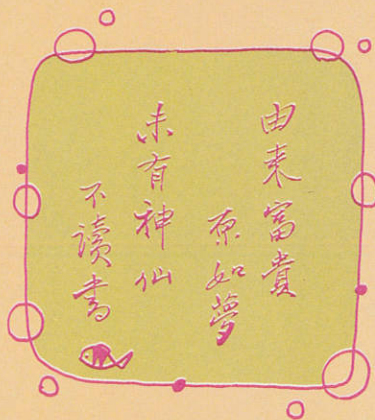 由来富貴
原如夢
未有神仙
不讀書